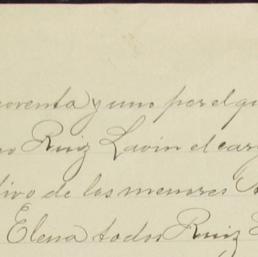 noventa y uno por el qu
Ruiz Lavin el car
tivo de los menores
Elena todos Ruiz